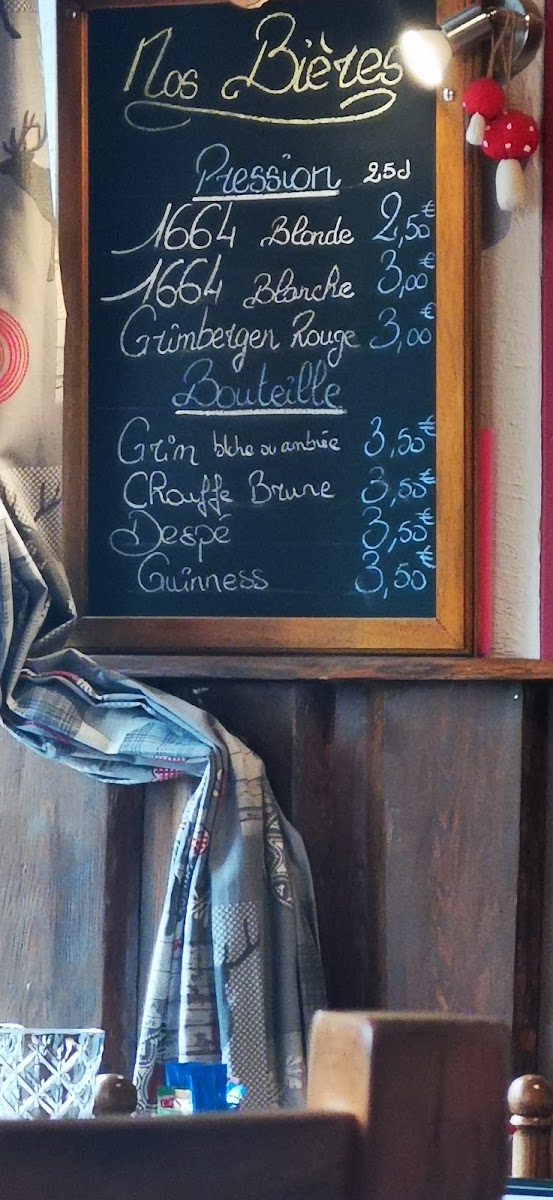 Nos Bières
Pression 25cl
1664 Blonde 2,50€
1664 Blanche 3,00€
Grimbergen Rouge 3,00€
Bouteille
Grim blche ou ambrée 3,50€
Chouffe Brune 3,50€
Despé 3,50€
Guinness 3,50€